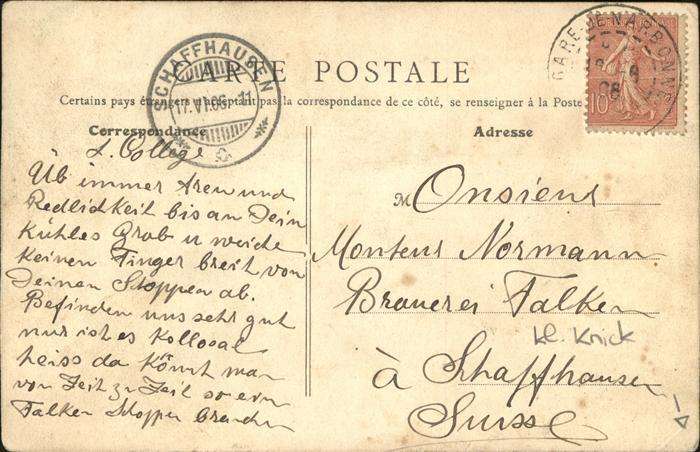 CARTE POSTALE
Certains pays étrangers n'acceptant pas la correspondance de ce côté, se renseigner à la Poste
Correspondance
Adresse
SCHAFFHAUSEN
17.VI.06.-11
GARE DE NARBONNE
10
L. College
Üb immer Treu und
Redlichkeit bis an Dein
Kühles Grab u weiche
Keinen Finger breit von
Deinen Stoppen ab.
Befinden uns sehr gut
nur ist es Kollosal
heiss da könnt man
von Zeit zu Zeit so ein
Falken Stoppen brauchen
Monsieur
Monteur Normann
Brauerei Falken
kl. Knick
à Schaffhausen
Suisse